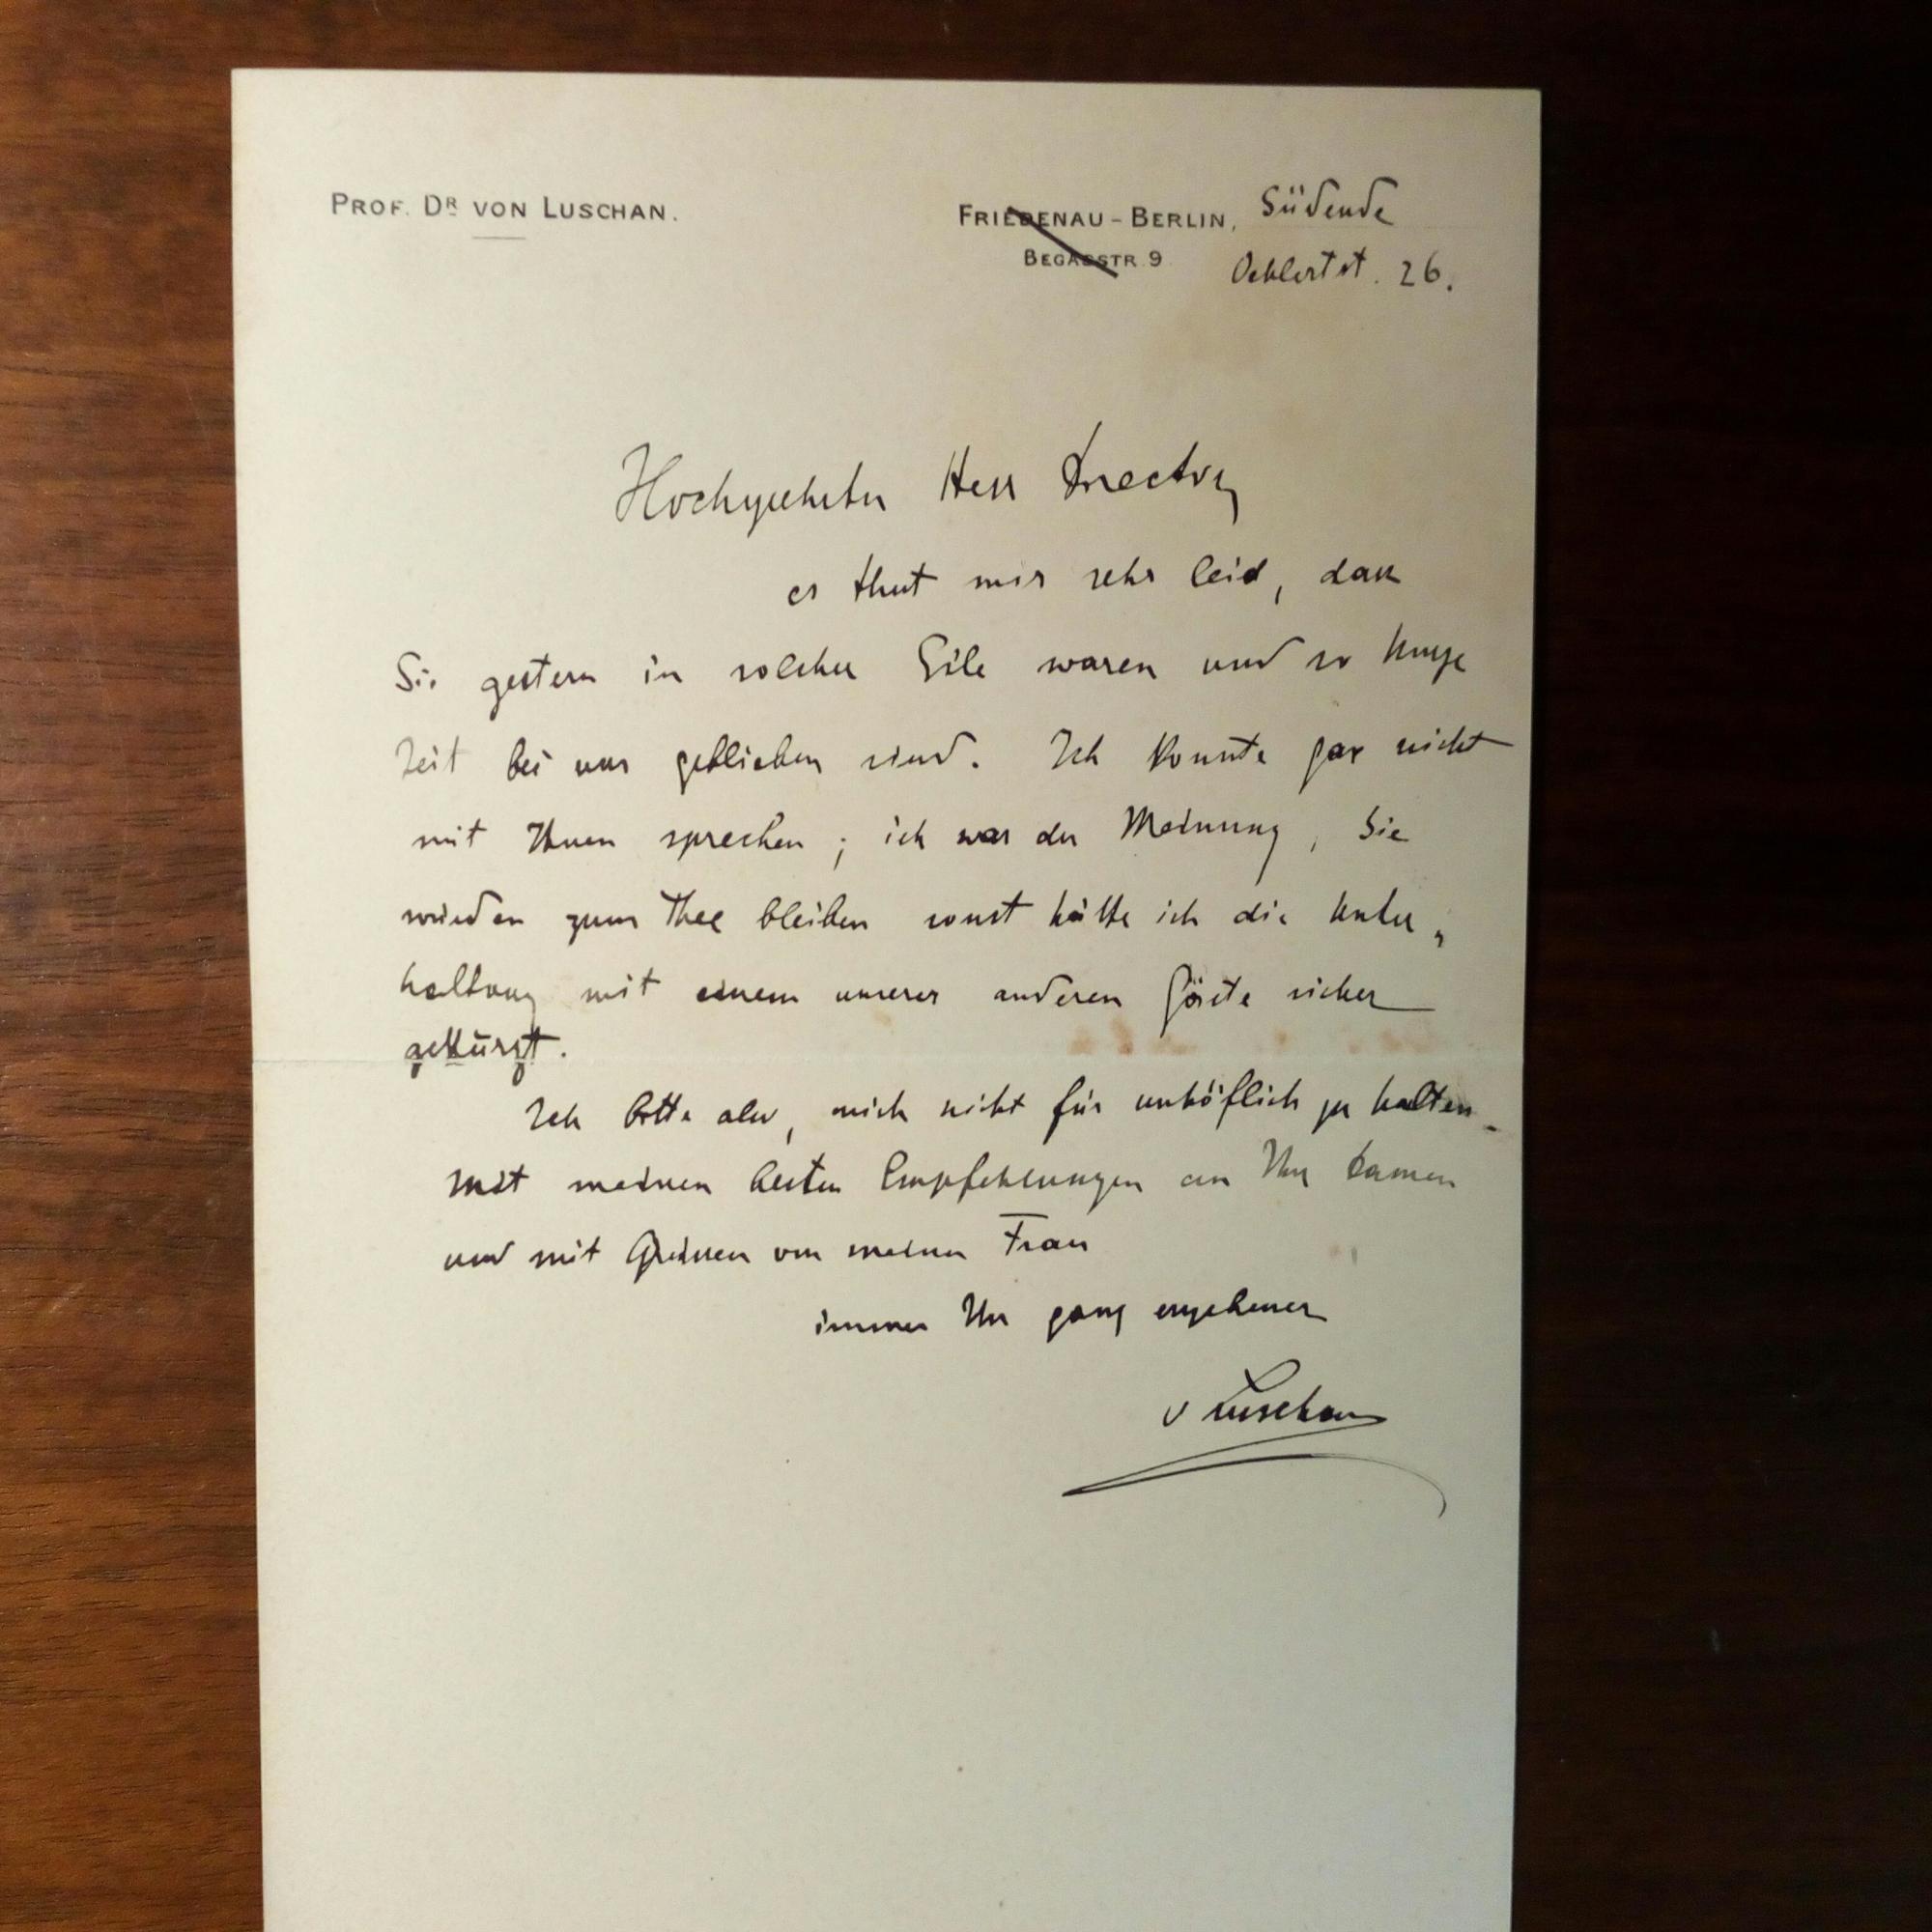 PROF. DR VON LUSCHAN.
FRIEDENAU-BERLIN, Südende
BEGASSTR. 9 Oehlertst. 26.
Hochgeehrter Herr Director,
es thut mir sehr leid, dass
Sie gestern in solcher Eile waren und so kurze
Zeit bei uns geblieben sind. Ich konnte gar nicht
mit Ihnen sprechen; ich war der Meinung, Sie
würden zum Thee bleiben sonst hätte ich die Unter-
haltung mit einem unserer anderen Gäste sicher
gekürzt.
Ich bitte also, mich nicht für unhöflich zu halten.
Mit meinen besten Empfehlungen an Ihre Damen
und mit Grüssen von meiner Frau
immer Ihr ganz ergebener
v Luschan